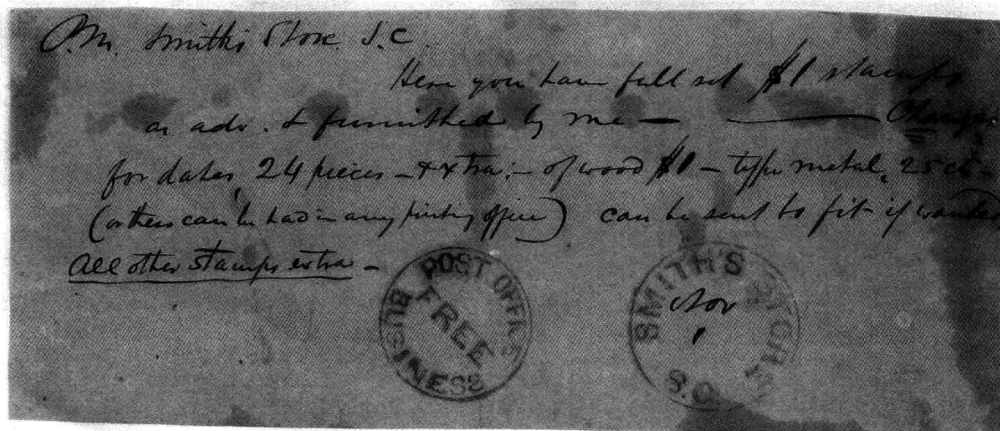 P.M. Smith's Store S.C.
Here you have full set $1 stamps
as adv. & furnished by me — — Changes
for dates, 24 pieces — extra: — of wood $1 — type metal, 25 cts —
(or these can be had in any printing office) can be sent to fit if wanted
All other stamps extra —
POST OFFICE
FREE
BUSINESS
SMITH'S STORE
Nov
1
S.C.